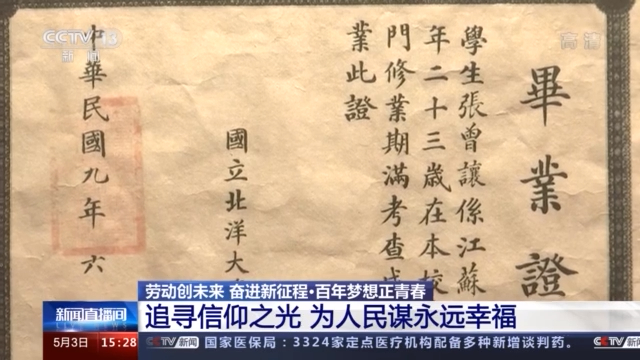 CCTV 13
新闻
高清
畢業證
學生張曾讓係江蘇
年二十三歲在本校
門修業期滿考查成
業此證
國立北洋大
中華民國九年 六
劳动创未来 奋进新征程·百年梦想正青春
新闻直播间
追寻信仰之光 为人民谋永远幸福
5月3日 15:28
CCTV 新闻 国家医保局:3324家定点医疗机构配备多种新增谈判药。